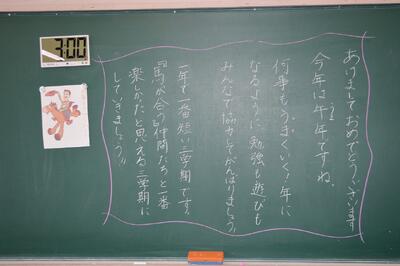 あけましておめでとうございます
今年は午年ですね。
うま
何事も"うま"くいく!年に
なるように、勉強も遊びも
みんなで協力してがんばりましょう。
一年で一番短い三学期です。
『馬が合う』仲間たちと一番
楽しかったと思える三学期に
していきましょう!!
3:00